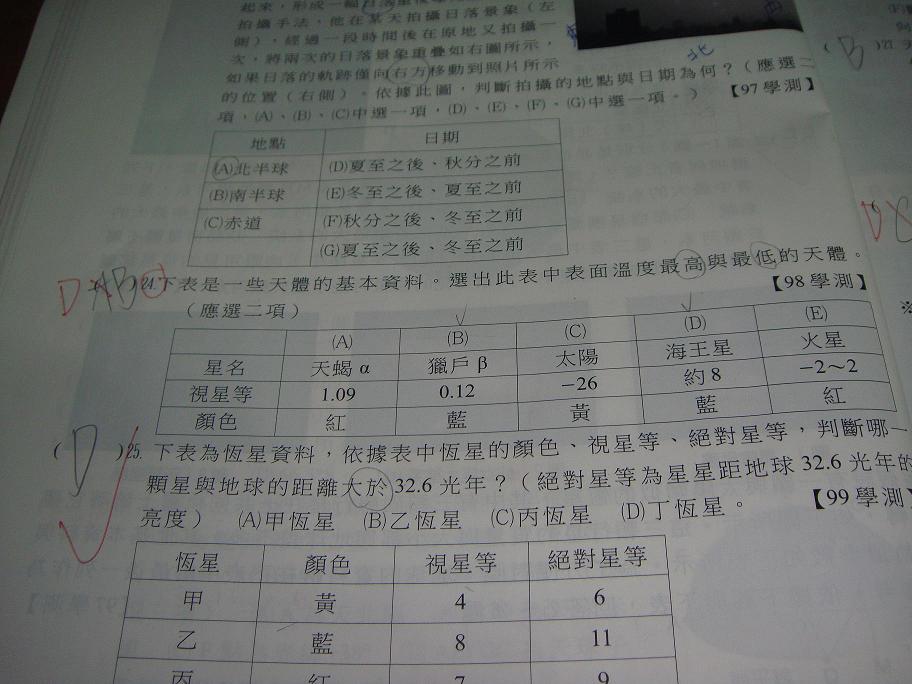 拍攝手法，他在某天拍攝日落景象（左
側），經過一段時間後在原地又拍攝一
次，將兩次的日落景象重疊如右圖所示，
如果日落的軌跡僅向右方移動到照片所示
的位置（右側）。依據此圖，判斷拍攝的地點與日期為何？（應選二
項，(A)、(B)、(C)中選一項，(D)、(E)、(F)、(G)中選一項。） 【97學測】
北
地點 日期
(A)北半球 (D)夏至之後、秋分之前
(B)南半球 (E)冬至之後、夏至之前
(C)赤道 (F)秋分之後、冬至之前
(G)夏至之後、冬至之前
24.下表是一些天體的基本資料。選出此表中表面溫度最高與最低的天體。
（應選二項） 【98學測】
(A) (B) (C) (D) (E)
星名 天蠍α 獵戶β 太陽 海王星 火星
視星等 1.09 0.12 −26 約8 −2～2
顏色 紅 藍 黃 藍 紅
( D )25. 下表為恆星資料，依據表中恆星的顏色、視星等、絕對星等，判斷哪一
顆星與地球的距離大於32.6光年？（絕對星等為星星距地球32.6光年的
亮度） (A)甲恆星 (B)乙恆星 (C)丙恆星 (D)丁恆星。 【99學測】
恆星 顏色 視星等 絕對星等
甲 黃 4 6
乙 藍 8 11
丙 紅 7 9
( B )21.